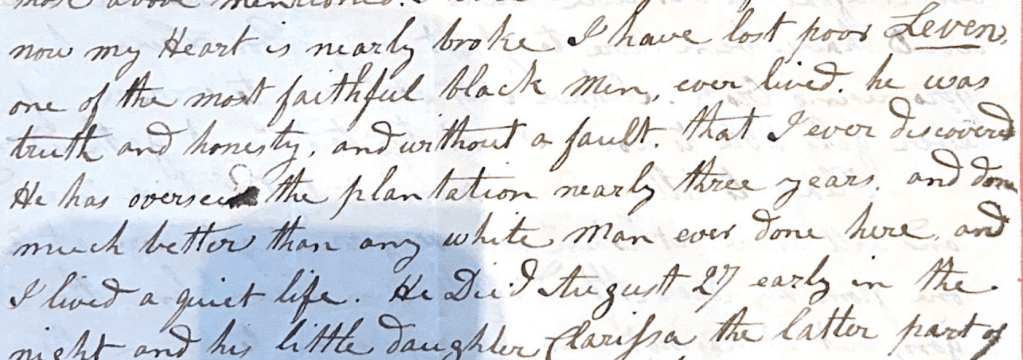 most above mentioned.
now my Heart is nearly broke I have lost poor Leven,
one of the most faithful black men, ever lived. he was
truth and honesty, and without a fault. that I ever discovered
He has overseed the plantation nearly three years. and done
much better than any white man ever done here, and
I lived a quiet life. He Died August 27 early in the
night and his little daughter Clarissa the latter part of